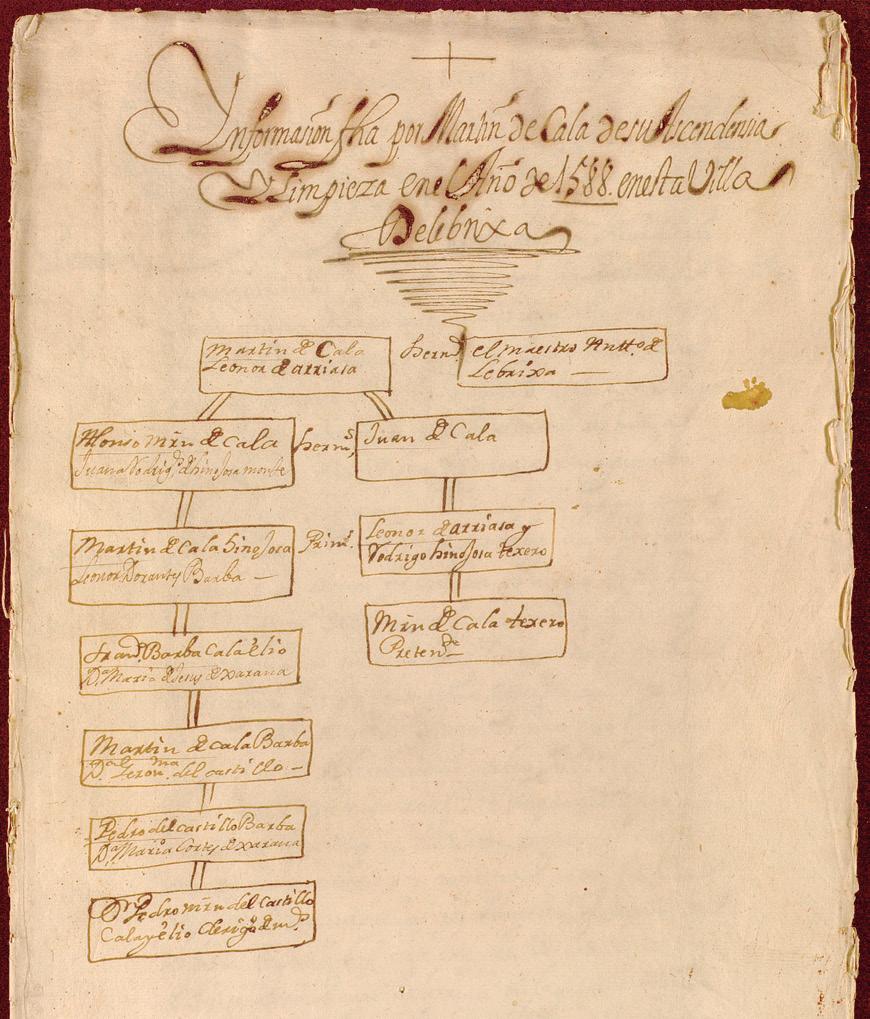 Informasion fha por Martin de Cala de su Ascendensia
y Limpieza en el Año de 1588. en esta Villa
De lebrixa
Martin de Cala
Leonor de arriasa
herno
el maestro Antto. de
Lebrixa
Alonso Mrn de Cala
Juana Rodrigs. de hinoJosa monte
herms,
Juan de Cala
Martin de Cala hinoJosa
Leonor Dorantes Barba
Prims.
Leonor de arriasa y
Rodrigo hinoJosa texero
Mrn de Cala texero
Pretende
Frando. Barba Cala élio
Da. Maria de Jesus de xarana
Martin de Cala Barba
Da. Geronma. del castillo
Pedro del castillo Barba
Da. Maria Cortes de xarana
Dn. Pedro mrn del Castillo
Cala y élio clerigo de ms.